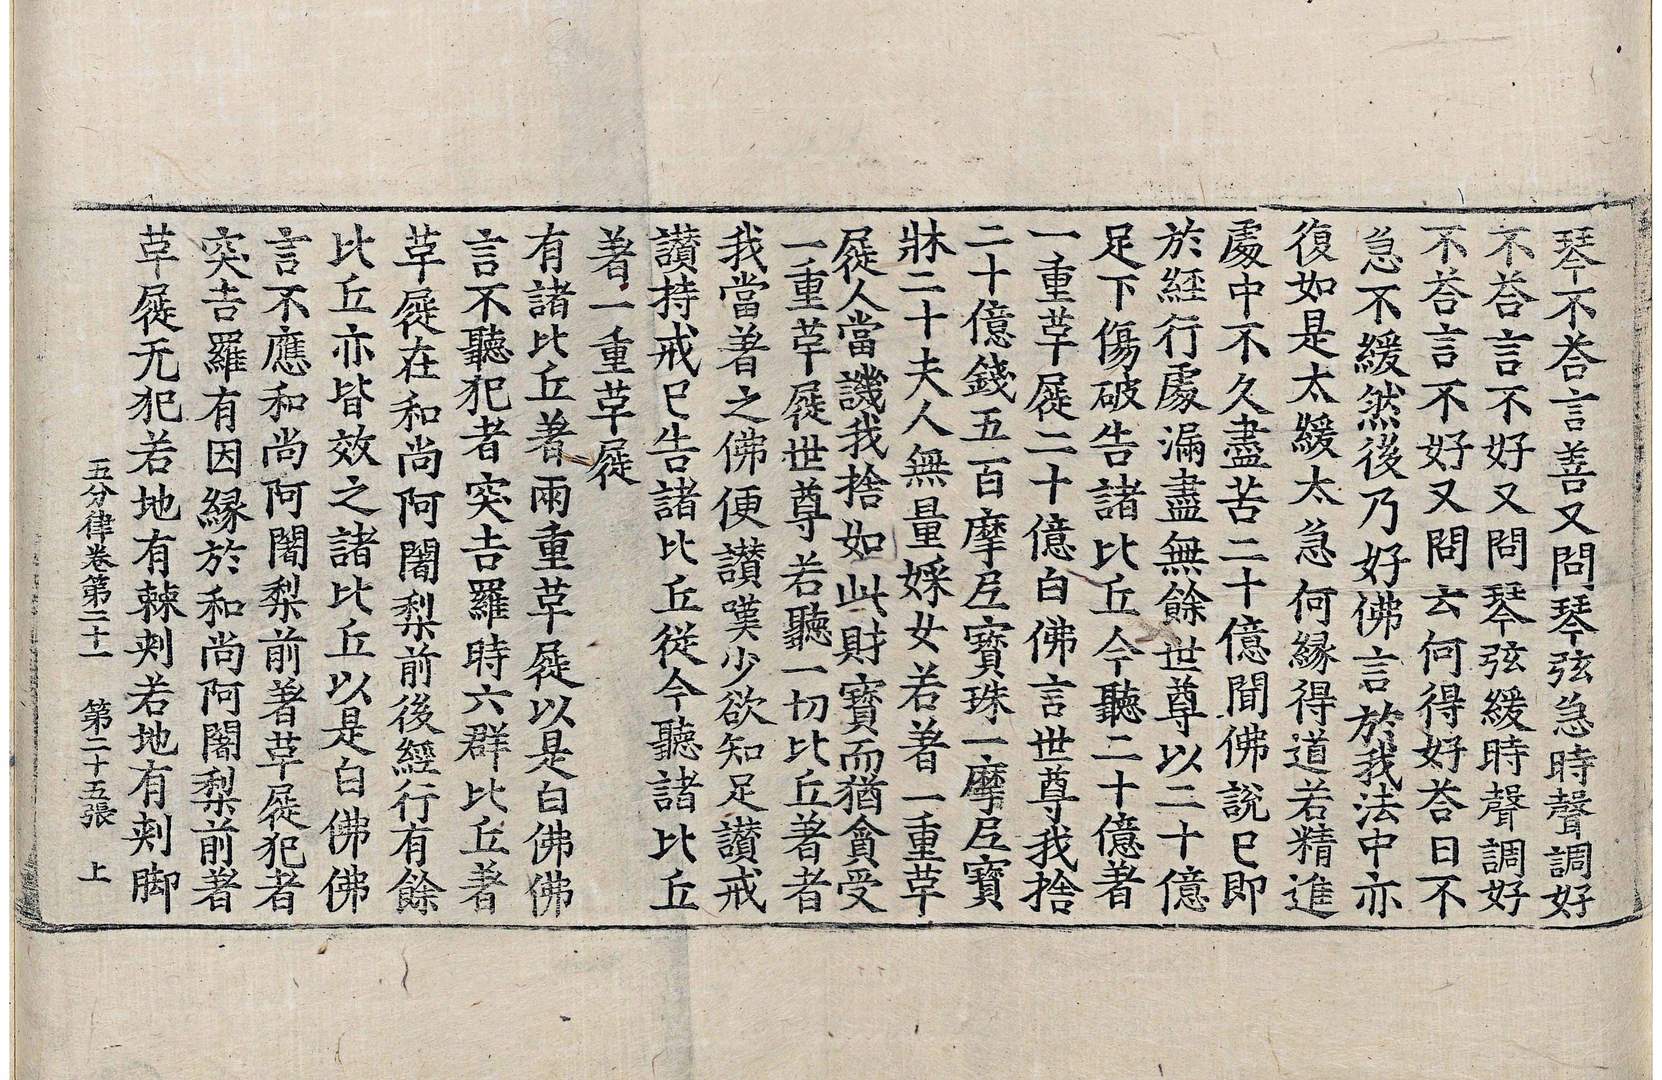 琴不荅言善又問琴弦急時聲調好
不荅言不好又問琴弦緩時聲調好
不荅言不好又問云何得好荅曰不
急不緩然後乃好佛言於我法中亦
復如是太緩太急何縁得道若精進
處中不久盡苦二十億聞佛說已即
於經行處漏盡無餘世尊以二十億
足下傷破告諸比丘今聽二十億著
一重草屣二十億白佛言世尊我捨
二十億錢五百摩尼寶珠一摩尼寶
牀二十夫人無量婇女若著一重草
屣人當譏我捨如此財寶而猶貪受
一重草屣世尊若聽一切比丘著者
我當著之佛便讃嘆少欲知足讃戒
讃持戒已告諸比丘從今聽諸比丘
著一重草屣
有諸比丘著兩重草屣以是白佛佛
言不聽犯者突吉羅時六群比丘著
草屣在和尚阿闍梨前後經行有餘
比丘亦皆效之諸比丘以是白佛佛
言不應和尚阿闍梨前著草屣犯者
突吉羅有因縁於和尚阿闍梨前著
草屣无犯若地有棘刺若地有刺脚
五分律卷第二十一 第二十五張 上